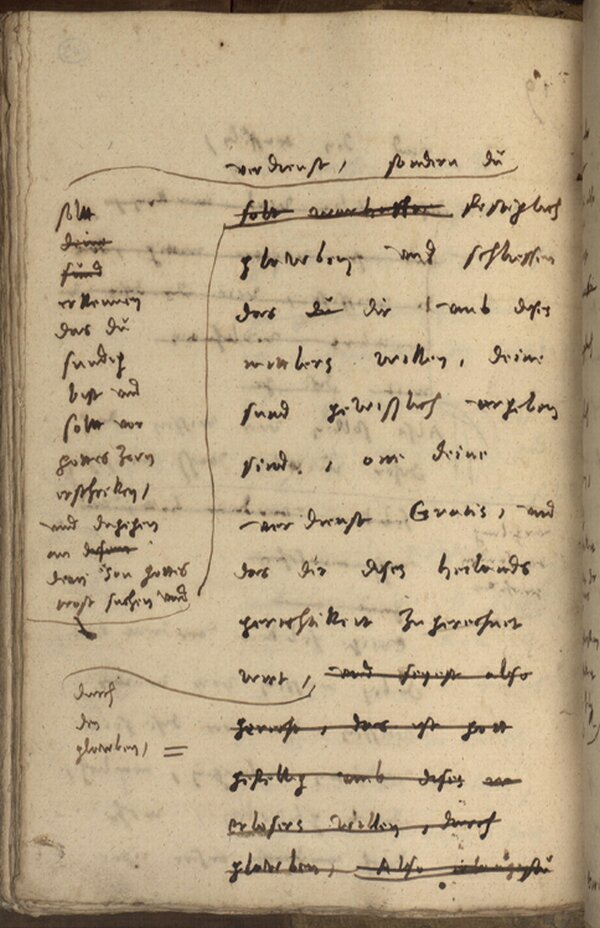 verdienst, sondern du
festiglich
glawben und schliessen
das du dir umb dises
mitlers willen, deine
sund gewißlich vergeben
sind, on deine
verdienst Gratis, und
das dir dises heilands
gerechtikeit zugerechnet
wirt, und seyest also
gerecht, das ist gott
gefellig umb dises
erlosers willen, durch
glawben, Also
sollt
deine
sund
erkennen
das du
sundig
bist und
sollt vor
gottes zorn
erschreken,
und dagegen
an
dem son gottes
trost suchen und
durch
den
glawben, =